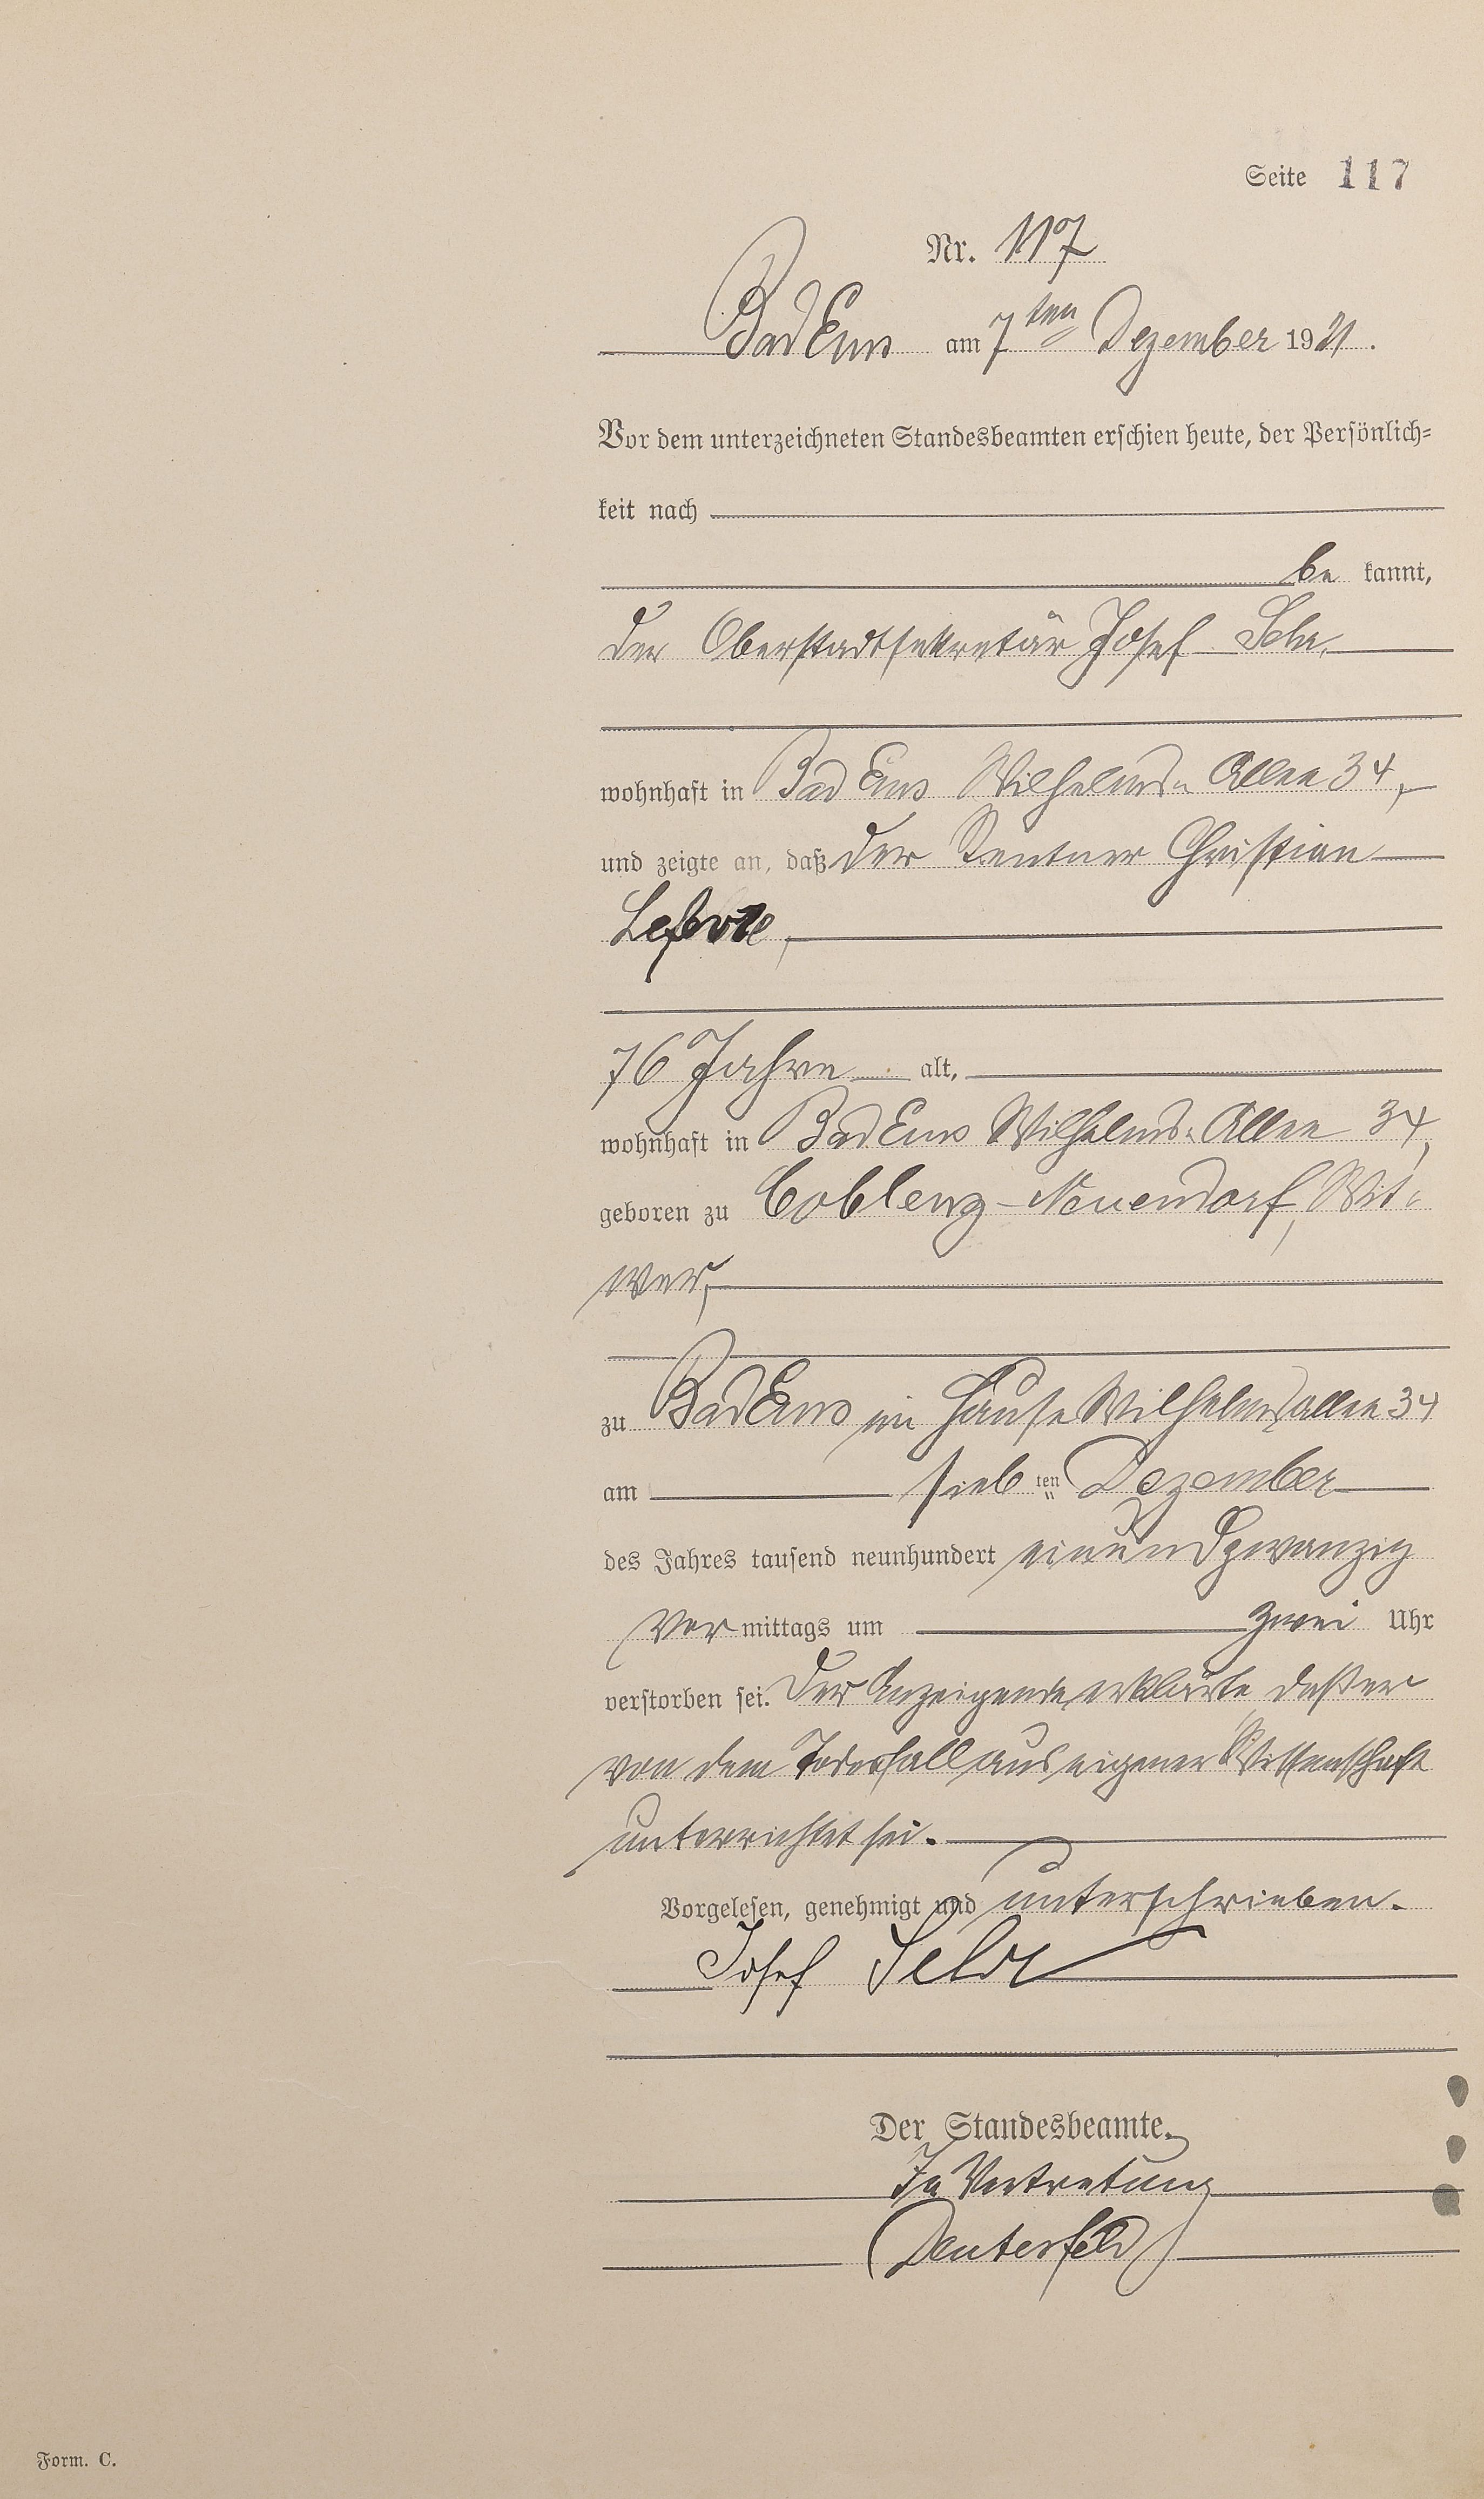 Seite 117
Nr. 117
Bad Ems am 7ten Dezember 1921.
Vor dem unterzeichneten Standesbeamten erschien heute, der Persönlich=
keit nach
be kannt,
der Oberstadtsekretär Josef
wohnhaft in Bad Ems Wilhelms-Allee 34,
und zeigte an, daß der Rentner Christian
76 Jahre alt,
wohnhaft in Bad Ems Wilhelms-Allee 34,
geboren zu Coblenz-Neuendorf, Wit-
wer,
zu Bad Ems im Hause Wilhelmsallee 34
am sieb ten Dezember
des Jahres tausend neunhundert einundzwanzig
Vor mittags um zwei Uhr
verstorben sei. Der Anzeigende erklärte, daß er
von dem Todesfall aus eigener Wissenschaft
unterrichtet sei.
Vorgelesen, genehmigt und unterschrieben.
Josef
Der Standesbeamte.
In Vertretung
Form. C.